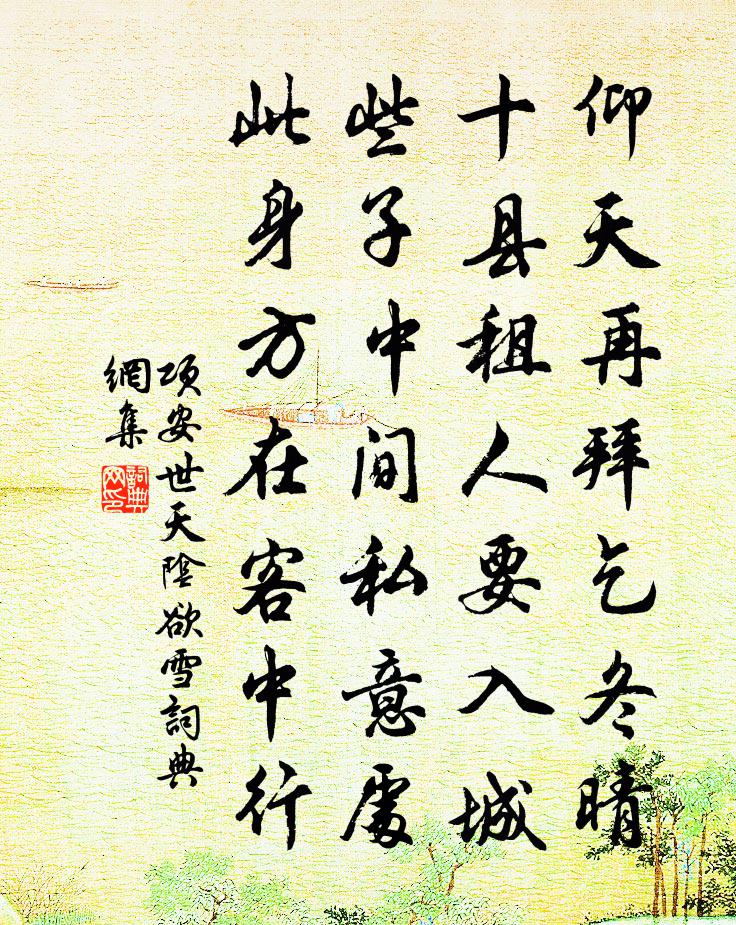 仰天再拜乞冬晴
十县租人要入城
些子中间私意處
此身方在客中行
项安世天陰欲雪詞典
網集
詞典
网印